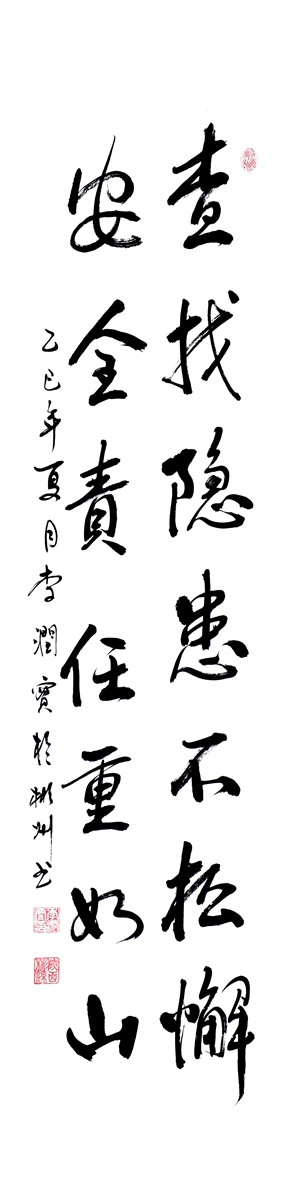 查找隐患不松懈
安全責任重如山
乙巳年夏月李潤寶於彬州书